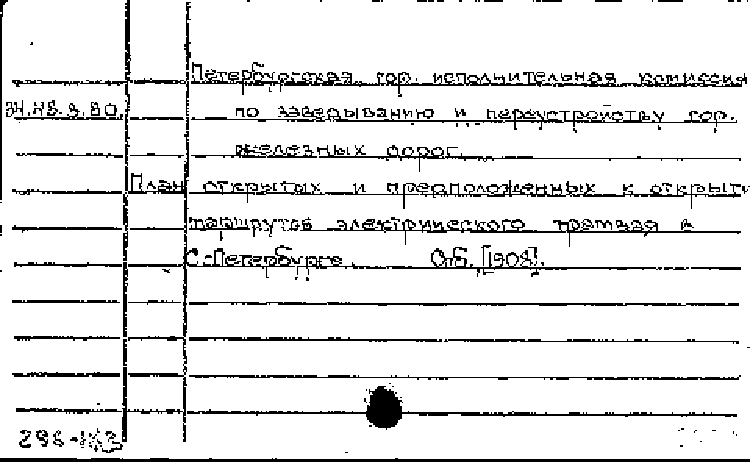 Петербургская гор. исполнительная комиссия
34.48.8.80. по заведыванию и переустройству гор.
железных дорог.
План открытых и предположенных к открыти
маршрутов электрического трамвая в
С.-Петербурге. Спб. [1908].